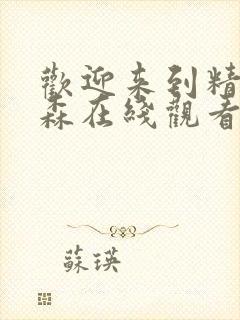 歡迎来到精
森在綫觀看
蘇瑛